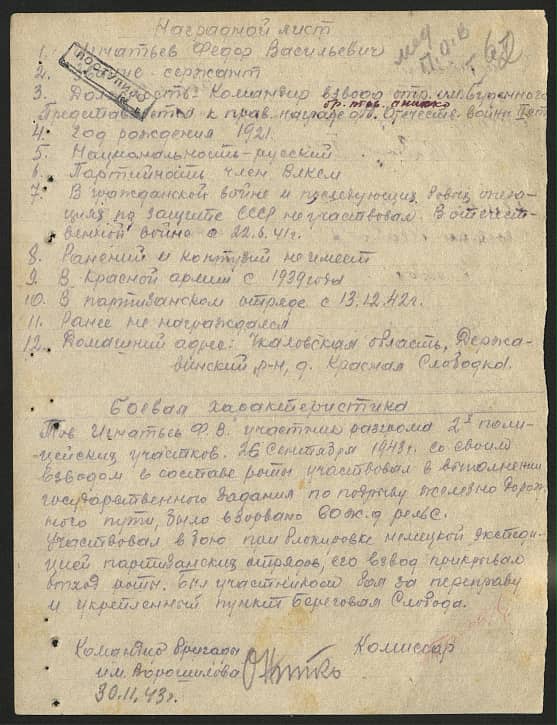 Наградной лист
1. Игнатьев Федор Васильевич
2. сержант
3. Командир взвода отр. им. Буденного
бр. тов. Аншко
Представляется к прав. награде Отечеств. войны II ст
4. Год рождения 1921.
5. Национальность-русский
6. Партийность член Влксм
7. В гражданской войне и последующих боевых опера-
циях по защите СССР не участвовал. В отечест-
венной войне с 22.6.41г.
8. Ранений и контузий не имеет
9. В Красной армии с 1939 года
10. В партизанском отряде с 13.12.42г.
11. Ранее не награждался
12. Домашний адрес: Чкаловская область, Держа-
винский р-н, д. Красная Слободка.
Боевая характеристика
Тов Игнатьев Ф.В. участник разгрома 2х поли-
цейских участков. 26 Сентября 1943г. со своим
взводом в составе роты участвовал в выполнении
государственного задания по подрыву железно дорож-
ного пути, было взорвано 60 ж.д рельс.
Участвовал в бою при блокировке немецкой экспеди-
цией партизанских отрядов, его взвод прикрывал
отход роты. Был участником боя за переправу
и укрепленный пункт Береговая Слобода.
Командир бригады Комиссар
им. Ворошилова
30.11.43г.
ПОСТУПИЛ
мед
П.О.В
62